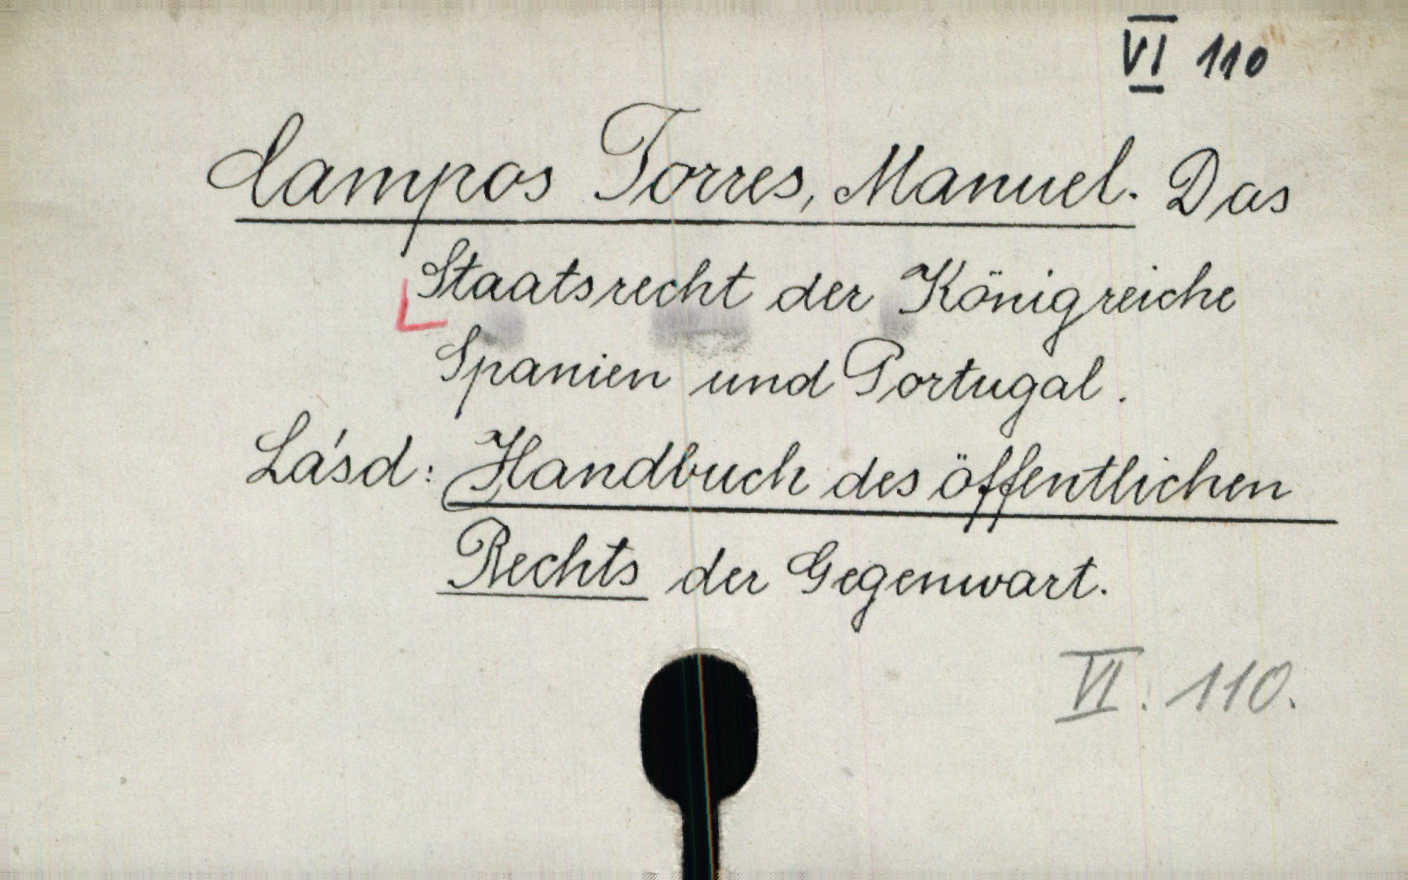 VI 110
Campos Torres, Manuel. Das
Staatsrecht der Königreiche
Spanien und Portugal.
Lásd: Handbuch des öffentlichen
Rechts der Gegenwart.
VI. 110.